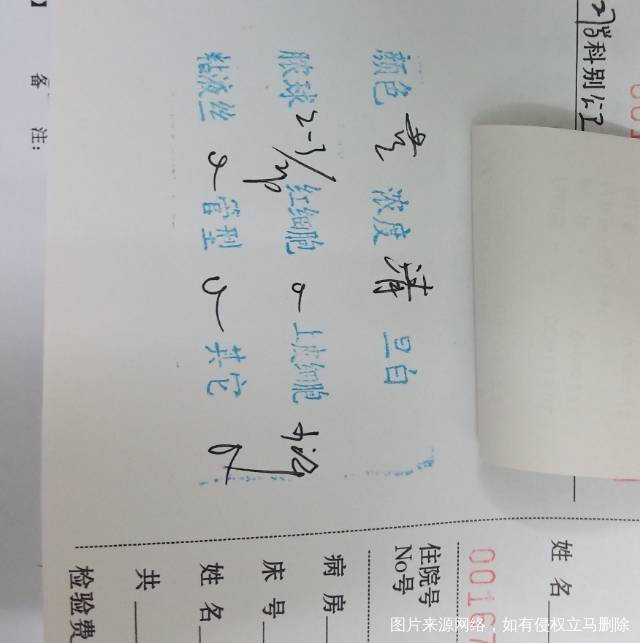 颜色 黄 浓度 清 旦白
脓球 2-3/HP 红细胞 上皮细胞 少许
粘液丝 管型 其它
备 注:
科别
姓 名
0016
住院号
No号
病 房
床 号
姓 名
共
检验费
图片来源网络，如有侵权立马删除